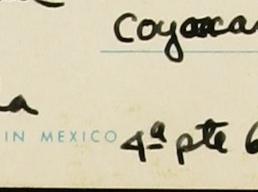 Coyoaca
IN MEXICO
4ª pte 6